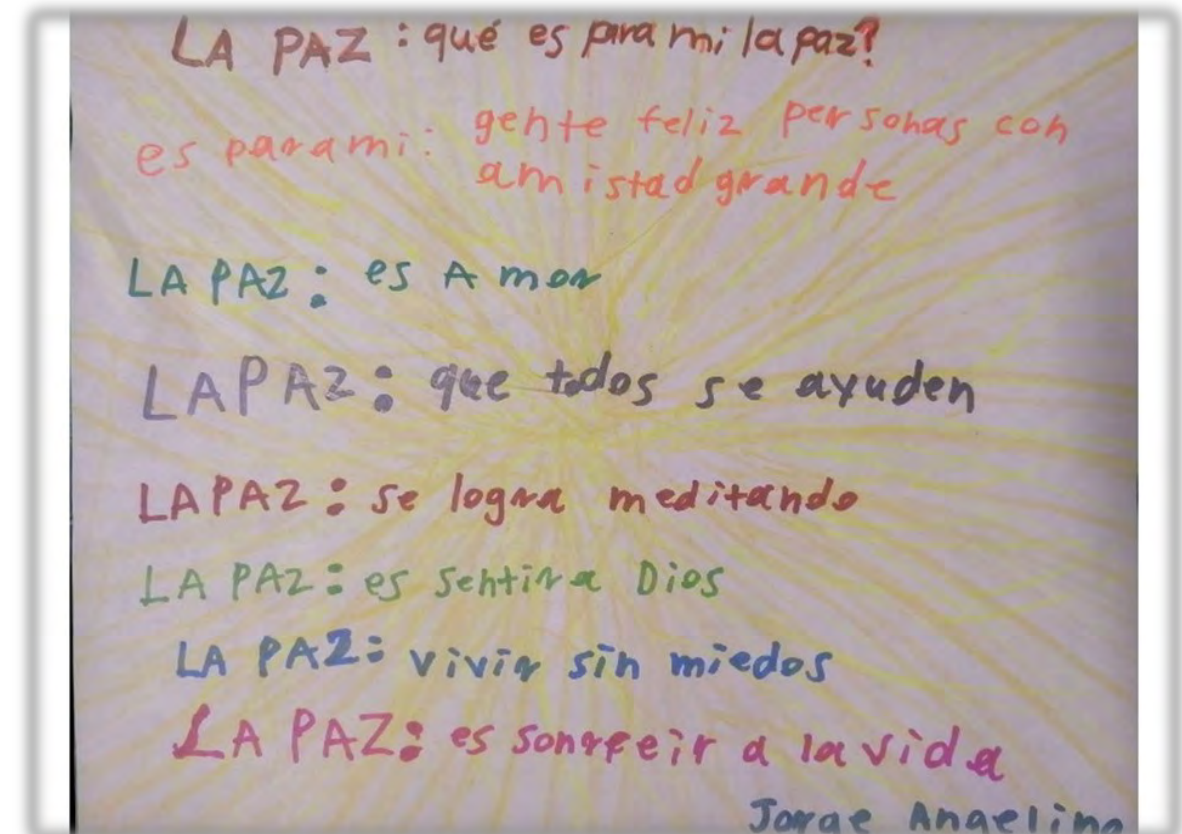 LA PAZ: qué es para mi la paz?
es para mi: gente feliz personas con
amistad grande
LA PAZ: es Amor
LA PAZ: que todos se ayuden
LA PAZ: se logra meditando
LA PAZ: es sentir a Dios
LA PAZ: vivir sin miedos
LA PAZ: es sonreeir a la vida
Jorge Angelino